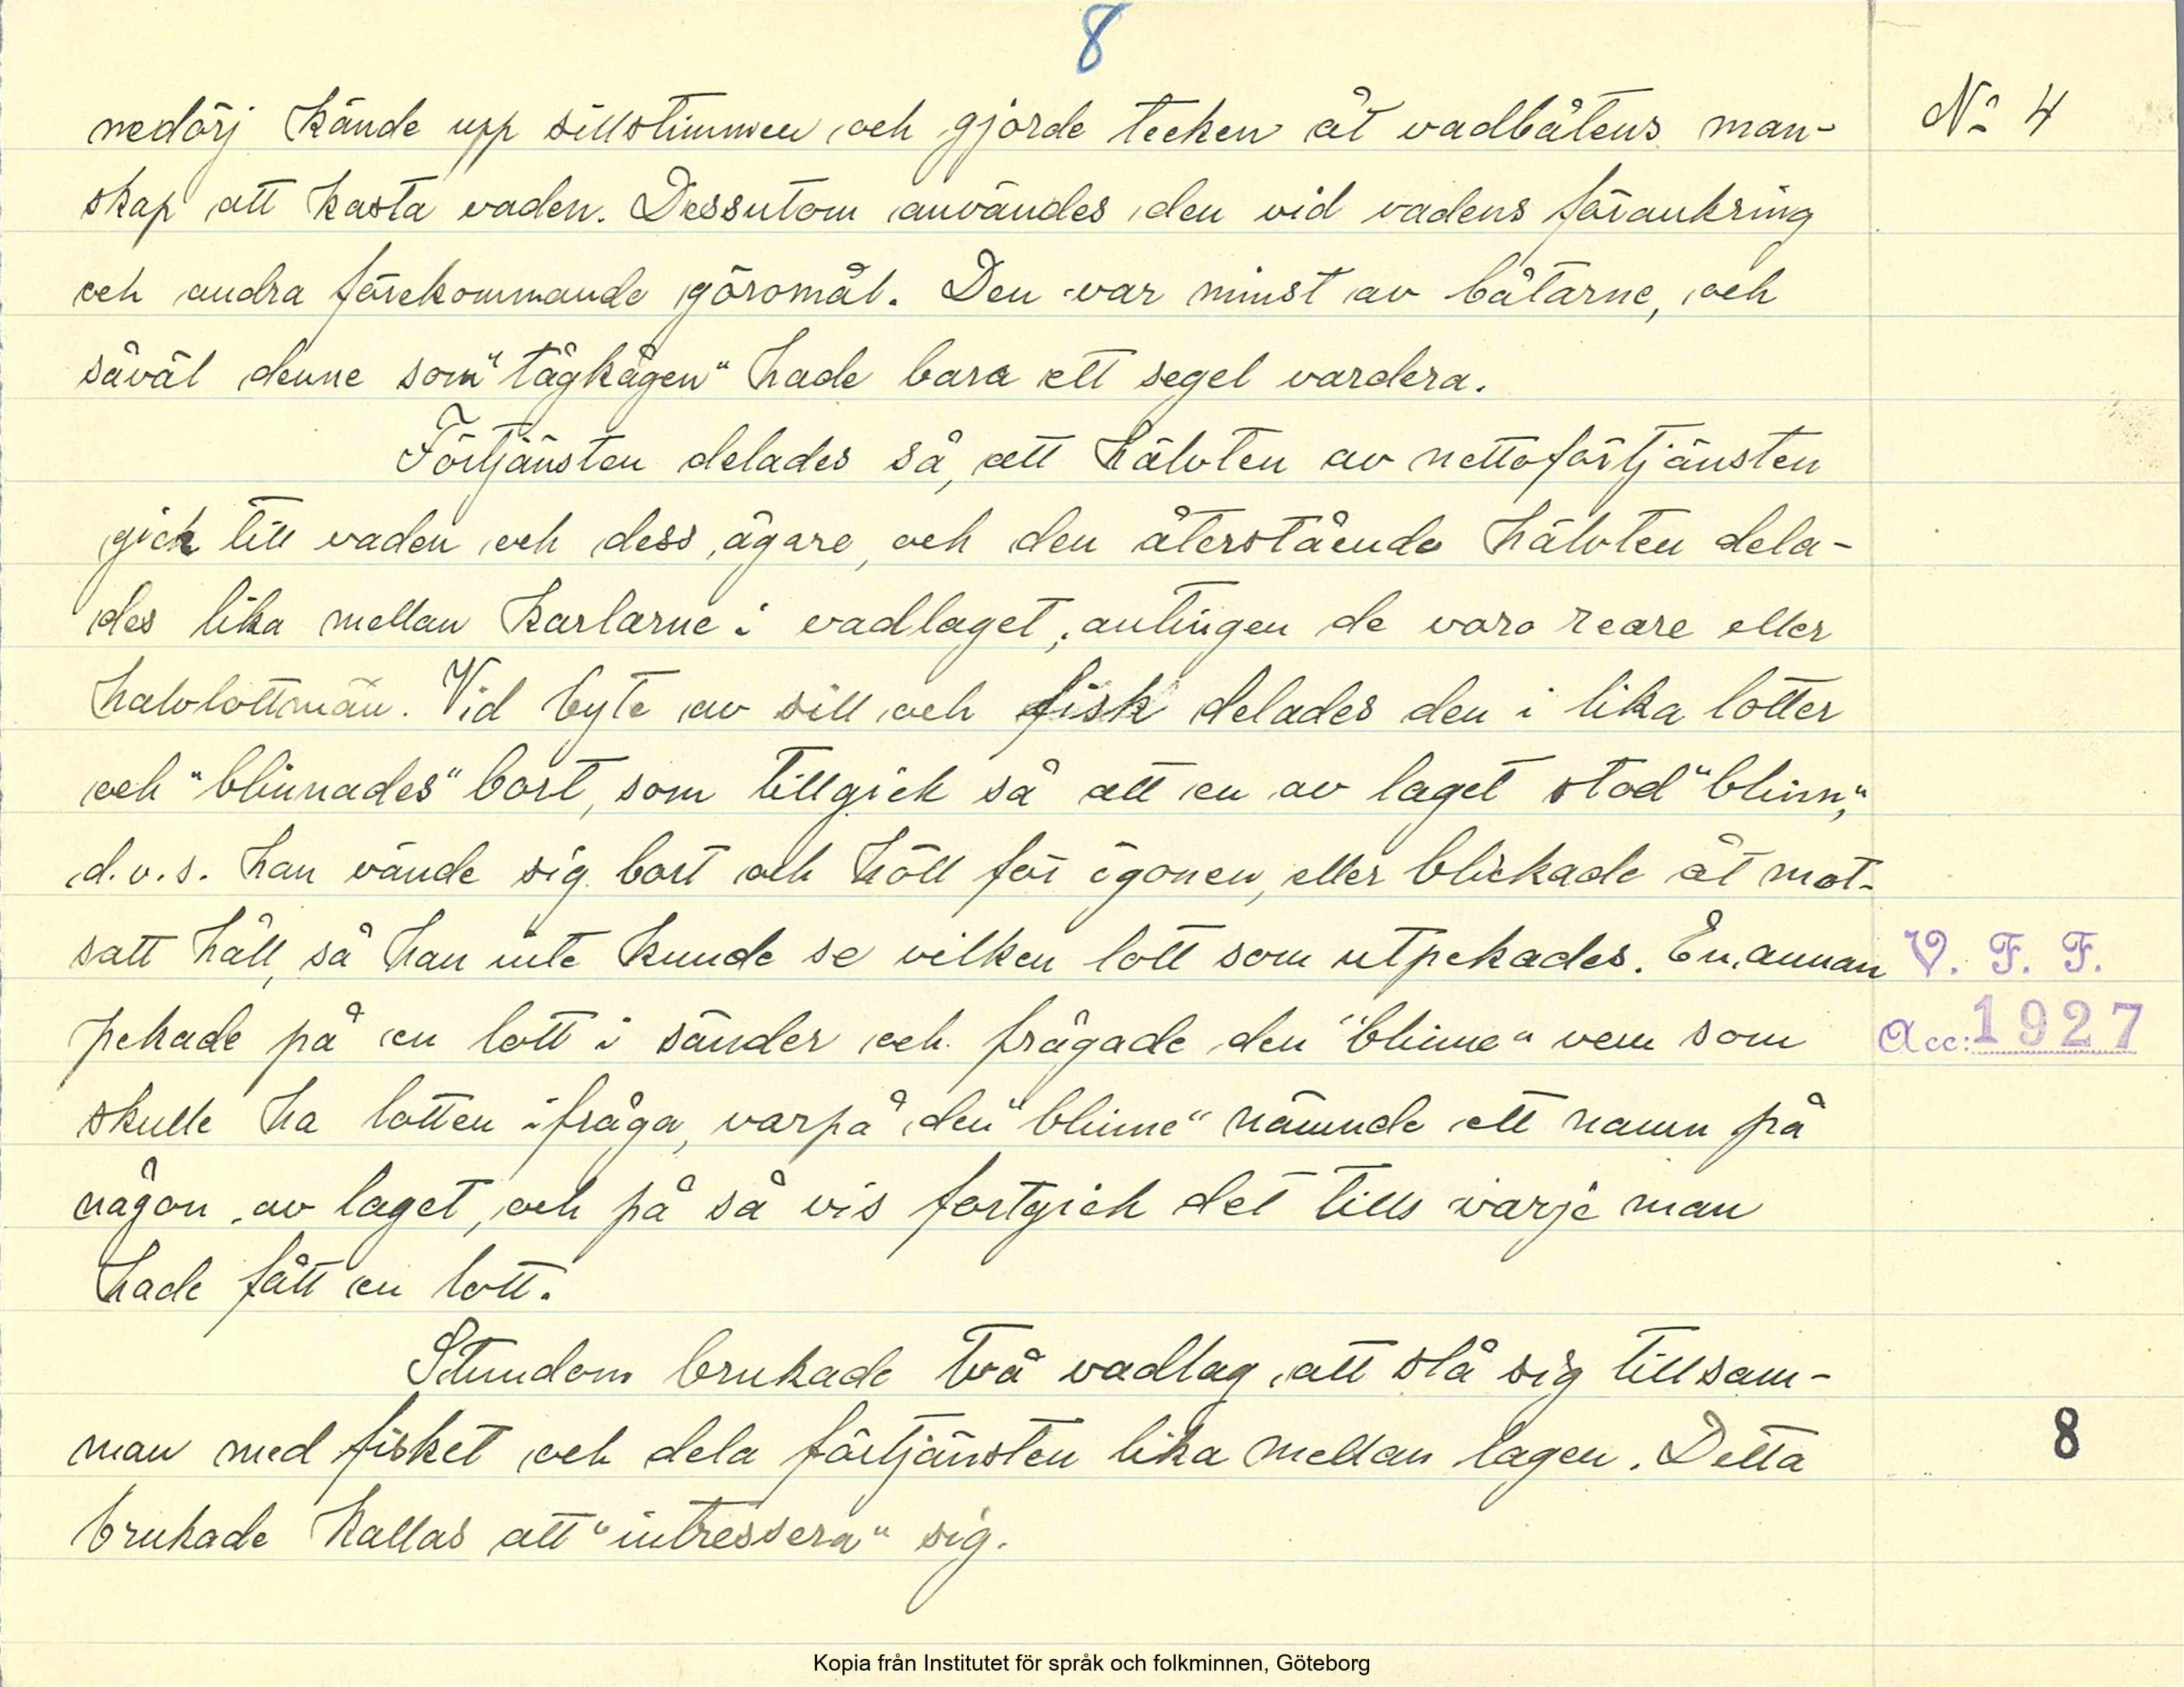 8
nedörj kände upp sillstimmen och gjorde tecken åt vadbåtens man-
N:o 4
skap att kasta vaden. Dessutom användes den vid vadens förankring
och andra förekommande göromål. Den var minst av båtarne, och
såväl denne som "tågkågen" hade bara ett segel vardera.
Förtjänsten delades så, att hälvten av nettoförtjänsten
gick till vaden och dess ägare, och den återstående hälvten dela-
des lika mellan karlarne i vadlaget, antingen de voro reare eller
halvlottmän. Vid byte av sill och fisk delades den i lika lotter
och "blinnades" bort, som tillgick så att en av laget stod "blinn",
d.v.s. han vände sig bort och höll för ögonen, eller blickade åt mot-
satt håll, så han inte kunde se vilken lott som utpekades. En annan
V. F. F.
pekade på en lott i sänder och frågade den "blinne" vem som
Acc: 1927
skulle ha lotten ifråga, varpå den "blinne" nämnde ett namn på
någon av laget, och på så vis fortgick det tills varje man
hade fått en lott.
Stundom brukade två vadlag att slå sig tillsam-
man med fisket och dela förtjänsten lika mellan lagen. Detta
8
brukade kallas att "intressera" sig.
Kopia från Institutet för språk och folkminnen, Göteborg